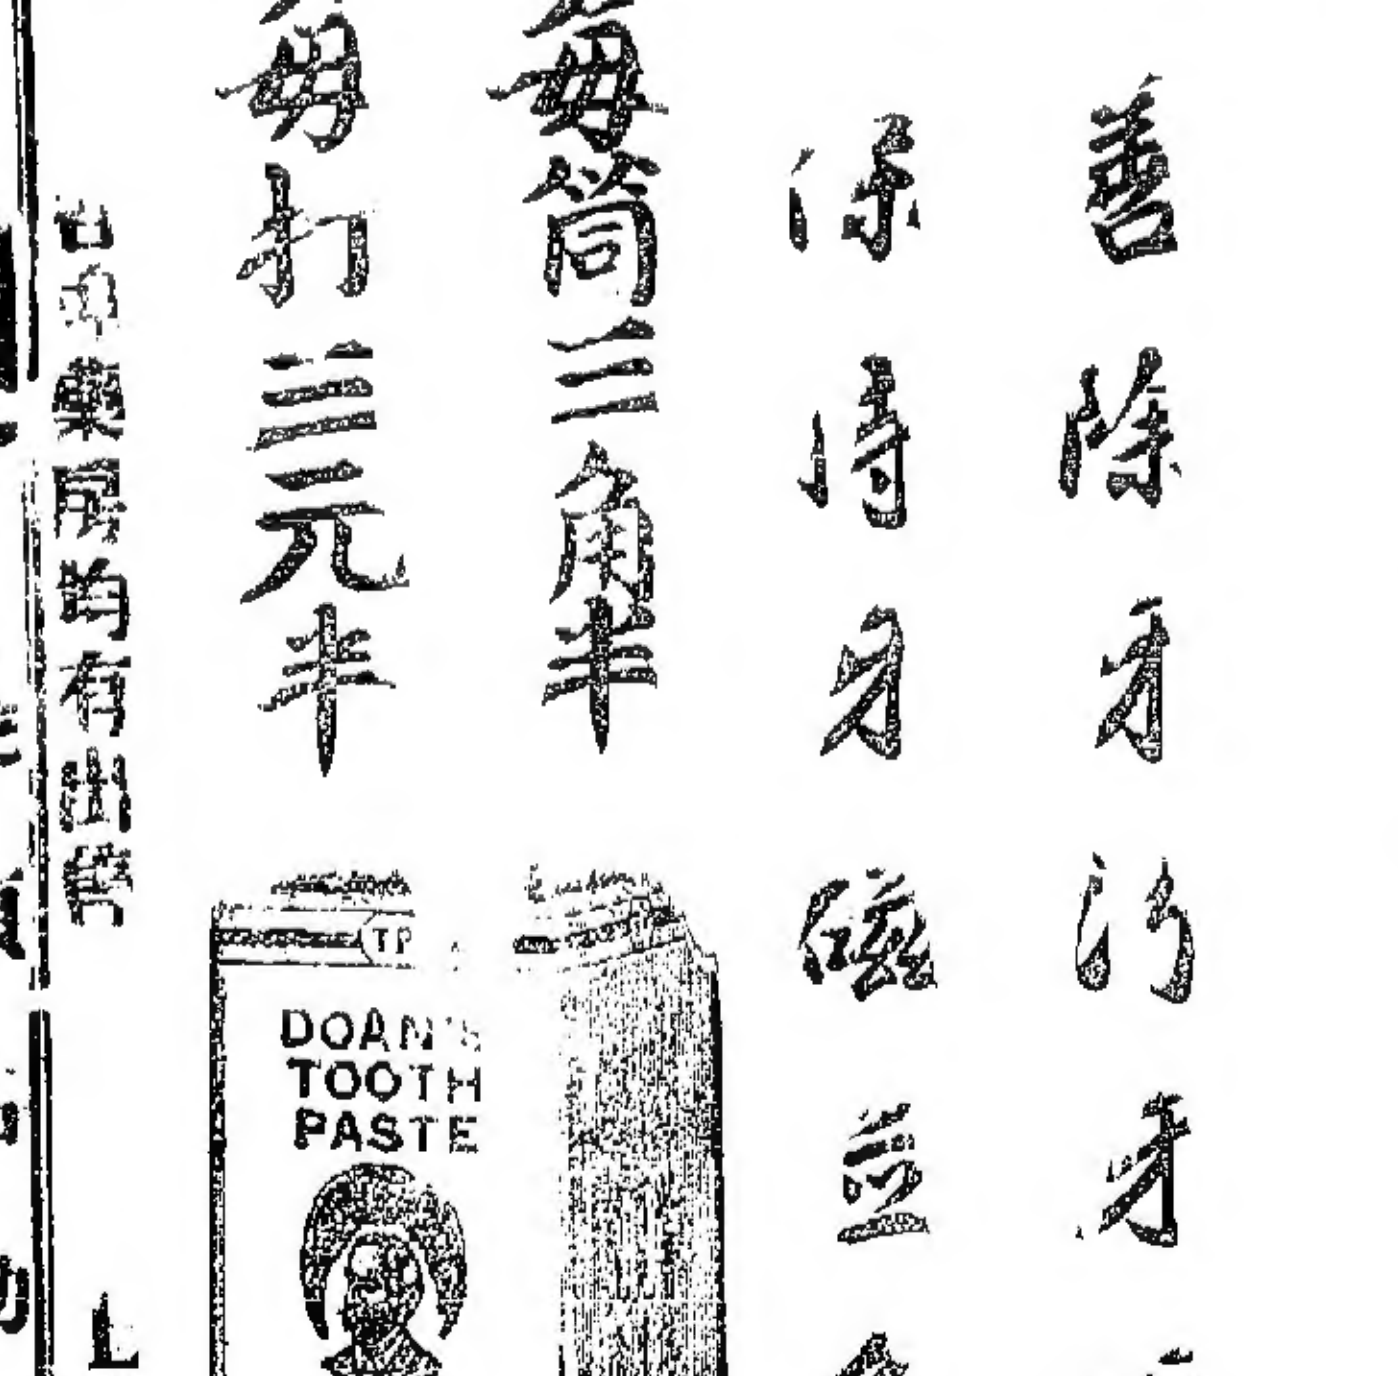 善除牙污牙
保持牙磁並
每筒三角半
每打三元半
藥房均有出售
TP
DOAN'S
TOOTH
PASTE